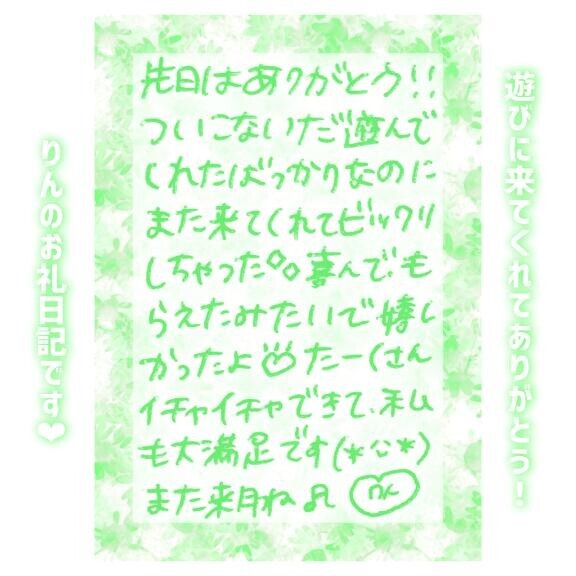 遊びに来てくれてありがとう！
先日はありがとう!!
ついこないだ遊んで
くれたばっかりなのに
また来てくれてビックリ
しちゃった°。喜んでも
らえたみたいで嬉し
かったよ♡たーくさん
イチャイチャできて、私
も大満足です(*ᵕ*)
また来月ね♫ りん
りんのお礼日記です❤